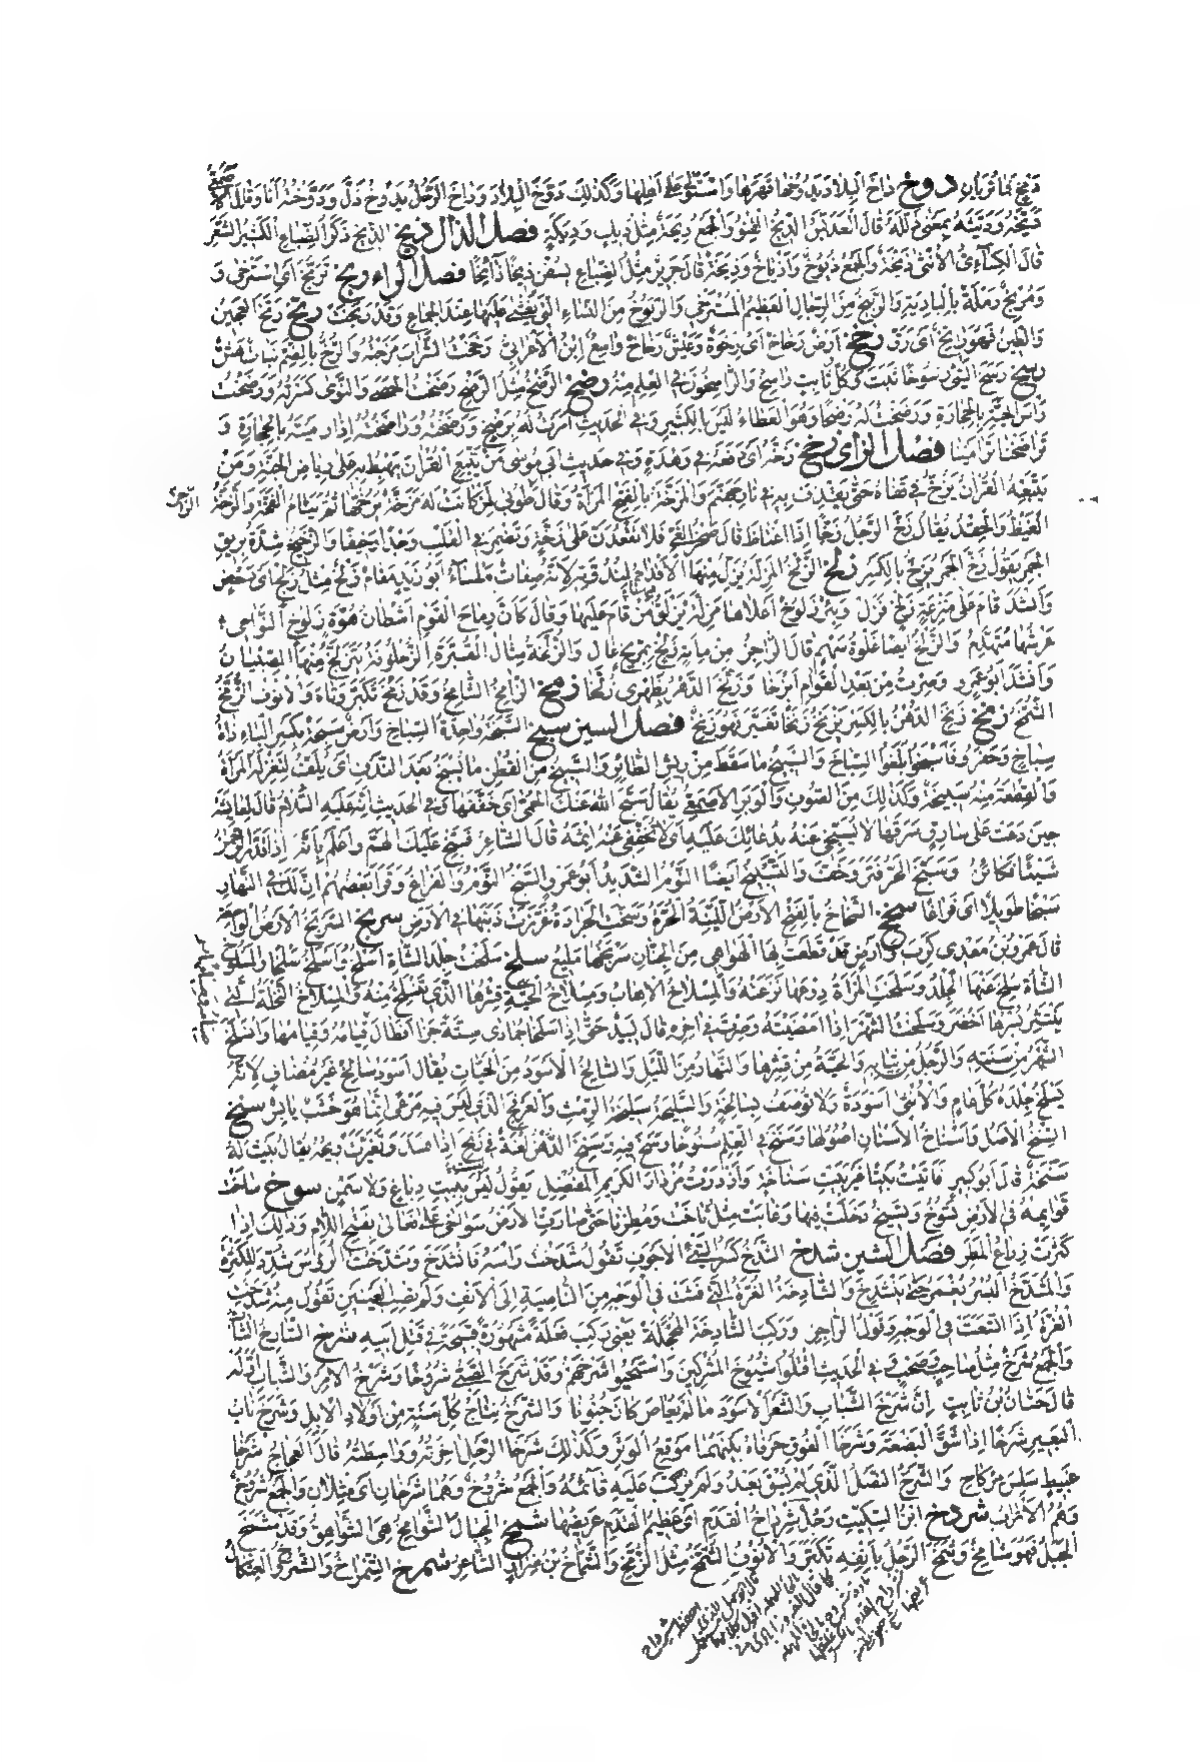 دوخ داخ البلاد يدوخها قهرها واستولى على اهلها وكذلك دوخ البلاد وداخ الرجل يدوخ ذل ودوخته انا وقال
قال العدبس الذيخ القنو والجمع ذيخة مثل ديك وديكة فصل الذال ذيخ الذيخ ذكر الضباع الكثير الشعر
قال الكسائي الانثى ذيخة والجمع ذيوخ واذياخ وذيخة قال جرير مثل الضباع يسفن ذيخا ذائخا فصل الراء ربخ تربخ اي استرخى و
ومربخ رملة بالبادية والربيخ من الرجال العظيم المسترخي والربوخ من النساء التي يغشى عليها عند الجماع وقد ربخت رتخ رتخ العجين
والطين فهو راتخ اي رق رخخ ارض رخاخ اي رخوة وعيش رخاخ واسع ابن الاعرابي رخخت الشراب مزجته والرخ بالضم نبات هش
رسخ رسخ الشيء رسوخا ثبت وكل ثابت راسخ والراسخون في العلم منه رضخ الرضخ مثل الرضح رضخت الحصى والنوى كسرته ورضخت
راس الحية بالحجارة ورضخت له رضخا وهو العطاء ليس بالكثير وفي الحديث امرت له برضخ وراضخته اذا رميته بالحجارة و
تراضخنا ترامينا فصل الزاي زخخ زخه اي دفعه في وهدة وفي حديث ابي موسى من يتبع القرآن يهبط به على رياض الجنة ومن
يتبعه القران يزخ في قفاه حتى يقذف به في نار جهنم والمزخة بالفتح المرأة وقال طوبى لمن كانت له مزخة يزخها ثم ينام الفخة والزخة
الغيظ والحقد يقال زخ الرجل زخا اذا اغتاظ قال صخر الغي فلا تقعدن على زخة وتضمر في القلب وجدا وخيفا والزخيخ شدة بريق
الجمر يقول زخ الجمر يزخ بالكسر زلخ الزلخ المزلة يزل منها الاقدام
وانشد قام على منزعة زلخ فزل وبئر زلوخ اعلاها مزلة يزلق من قام عليها وقال كان رماح القوم اشطان هوة زلوخ النواحي
عرشها متهدم والزلخ ايضا غلوة سهم قال الراجز من مائة زلخ بمريخ غال والزلخة مثال القبرة الزحلوقة يتزلج منها الصبيان
وانشد ابو عمرو وصرت من بعد القوام ابزخا وزلخ الدهر بظهري زلخا زمخ الزامخ الشامخ وقد زمخ تكبر وتاه والانوف الزمخ
الشمخ زنخ زنخ الدهن بالكسر يزنخ زنخا تغير فهو زنخ فصل السين سبخ السبخة واحدة السباخ وارض سبخة بكسر الباء ذات
سباخ وحفروا فاسبخوا بلغوا السباخ والسبيخ ما سقط من ريش الطائر والسبيخ من القطن ما يسبخ بعد الندف اي يلف لتغزله المرأة
والقطعة منه سبيخة وكذلك من الصوف والوبر الاصمعي يقال سبخ الله عنك الحمى اي خففها وفي الحديث انه عليه السلام قال لعائشة
حين دعت على سارق سرقها لا تسبخي عنه بدعائك عليه اي لا تخففي عنه اثمه قال الشاعر فسبخ عليك الهم واعلم بأنه اذا قدر الرحمن
شيئا فكائن وسبخ الحر فتر وخف والتسبيخ ايضا النوم الشديد ابو عمرو السبخ النوم والفراغ وقرا بعضهم ان لك في النهار
سبخا طويلا اي فراغا سخخ السخاخ بالفتح الارض اللينة الحرة وسخت الجرادة غرزت ذنبها في الارض سربخ السربخ الارض الواسعة
قال عمرو بن معدي كرب وارض قد قطعت بها الهواهي من الجنان سربخها مليع سلخ سلخت جلد الشاة اسلخ واسلخ سلخا والمسلوخ
الشاة سلخ عنها الجلد وسلخت المرأة درعها نزعته والمسلاخ الاهاب ومسلاخ الحية قشرها الذي تنسلخ منه والمسلاخ النخلة التي
ينتثر بسرها اخضر وسلخت الشهر اذا امضيته وصرت في اخره قال لبيد حتى اذا سلخا جمادى ستة جزءا فطال صيامه وصيامها وانسلخ
الشهر من سنته والرجل من ثيابه والحية من قشرها والنهار من الليل والسالخ الاسود من الحيات يقال اسود سالخ غير مضاف لانه
يسلخ جلده كل عام والانثى اسودة ولا توصف بسالخة والسليخة سليخة الرمث والعرفج الذي ليس فيه مرعى انما هو خشب يابس سنخ
السنخ الاصل واسناخ الاسنان اصولها وسنخ في العلم سنوخا رسخ فيه وسنخ الدهن لغة في زنخ اذا فسد وتغيرت ريحه يقال بيت له
سنخة قال ابو كبير فاتيت بيتا غير بيت سناخة وازدرت مزدار الكريم المفضل يقول ليس ببيت دباغ ولا سمن سوخ ساخت
قوائمه في الارض تسوخ وتسيخ دخلت فيها وغابت مثل ثاخت ومطرنا حتى صارت الارض سواخى على فعالى بفتح اللام وذلك اذا
كثرت رزاغ المطر فصل الشين شدخ الشدخ كسر الشيء الاجوف تقول شدخت راسه فانشدخ وشدخت الرؤس شدد للكثرة
والمشدخ البسر يغمز حتى ينشدخ والشادخة الغرة التي فشت في الوجه من الناصية الى الانف ولم تصب العينين تقول منه شدخت
الغرة اذا اتسعت في الوجه وقول الراجز وركب الشادخة المحجلة يعني ركب فعلة مشهورة قبيحة في قتل ابيه شرخ الشارخ الشاب
والجمع شرخ مثل صاحب وصحب وفي الحديث اقتلوا شيوخ المشركين واستحيوا شرخهم وقد شرخ الصبي شروخا وشرخ الامر والشباب اوله
قال حسان بن ثابت ان شرخ الشباب والشعر الاسود ما لم يعاص كان جنونا والشرخ نتاج كل سنة من اولاد الابل وشرخ ناب
البعير شرخا اذا شق البضعة وشرخا الفوق حرفاه بينهما موقع الوتر وكذلك شرخا الرحل اخرته وواسطته قال العجاج شرخا
غبيط سلس مركاح والشرخ النصل الذي لم يسق بعد ولم يركب عليه قائمه والجمع شروخ وهما شرخان اي مثلان والجمع شروخ
وهم الاتراب شردخ ابن السكيت رجل شرداخ القدم اي عظيم القدم عريضها شمخ الجبال الشوامخ هي الشواهق وقد شمخ
الجبل فهو شامخ وشمخ الرجل بأنفه تكبر والانوف الشمخ مثل الزمخ والشماخ بن ضرار الشاعر شمرخ الشمراخ والشمروخ العثكال